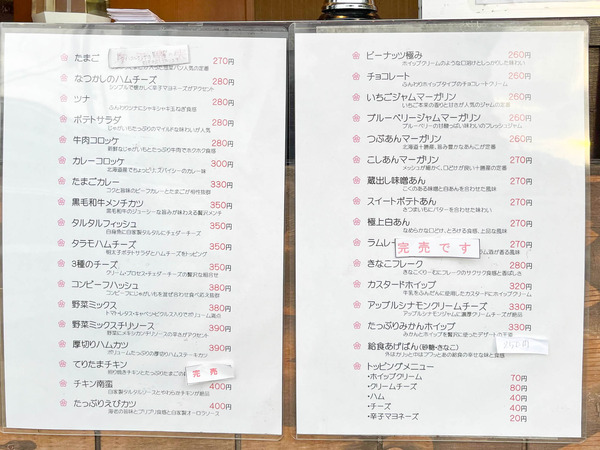 たまご 270円
パン人気の定番
なつかしのハムチーズ 280円
シンプルで懐かしく辛子マヨネーズがアクセント
ツナ 280円
ふんわりツナにシャキシャキ玉ねぎ食感
ポテトサラダ 280円
じゃがいもたっぷりのマイルドな味わいが人気
牛肉コロッケ 280円
新鮮なじゃがいもとたっぷり牛肉でホクホク食感
カレーコロッケ 300円
北海道産でちょっぴり、スパイシーのカレー味
たまごカレー 330円
コクと旨味のビーフカレーとたまごが相性抜群
黒毛和牛メンチカツ 350円
黒毛和牛のジューシーな旨みが味わえる贅沢メンチ
タルタルフィッシュ 350円
白身魚に自家製タルタルにチェダーチーズ
タラモハムチーズ 350円
明太子ポテトサラダとハムチーズをトッピング
3種のチーズ 350円
クリーム・プロセス・チェダーチーズの贅沢な組合せ
コンビーフハッシュ 380円
コンビーフにじゃがいもを混ぜ合わせ食べ応え抜群
野菜ミックス 380円
トマト・レタス・キャベツ・ピクルス入りでボリューム満点
野菜ミックスチリソース 390円
野菜にメキシカンチリソースの辛さがアクセント
厚切りハムカツ 390円
ボリュームたっぷりの厚切りハムステーキカツ
てりたまチキン
照り焼きチキンとたっぷりたまごの
完 売
チキン南蛮 400円
自家製タルタルソースとやわらかチキンが絶品
たっぷりえびカツ 400円
海老の旨味とプリプリ食感と自家製オーロラソース
ピーナッツ極み 260円
ホイップクリームのような口溶けとしっかりした味わい
チョコレート 260円
ふんわりホイップタイプのチョコレートクリーム
いちごジャムマーガリン 260円
いちご本来の香りと甘さが人気のジャムの定番
ブルーベリージャムマーガリン 260円
ブルーベリーの甘酸っぱい味わいのフレッシュジャム
つぶあんマーガリン 260円
北海道十勝産、旨み豊かなあんこが定番
こしあんマーガリン 270円
メッシュが細かく、口どけが良い十勝産の定番
蔵出し味噌あん 270円
こくのある味噌と白あんを合わせた風味
スイートポテトあん 270円
さつまいもにバターを合わせた味わい
極上白あん 270円
なめらかな口どけ、とろける食感、上品な風味
ラムレ 270円
ム酒が香る風味
完売です
きなこフレーク 280円
きなこくりーむにフレークのサクサク食感と香ばしさ
カスタードホイップ 320円
牛乳をふんだんに使用したカスタードにホイップクリーム
アップルシナモンクリームチーズ 330円
アップルシナモンジャムに濃厚クリームチーズが絶品
たっぷりみかんホイップ 330円
みかんとホイップを贅沢に使ったデザートの王様
給食あげぱん(砂糖・きなこ)
外はカリッと中はフワッとあの給食の幸せな味と食感
トッピングメニュー
・ホイップクリーム 70円
・クリームチーズ 80円
・ハム 40円
・チーズ 40円
・辛子マヨネーズ 20円